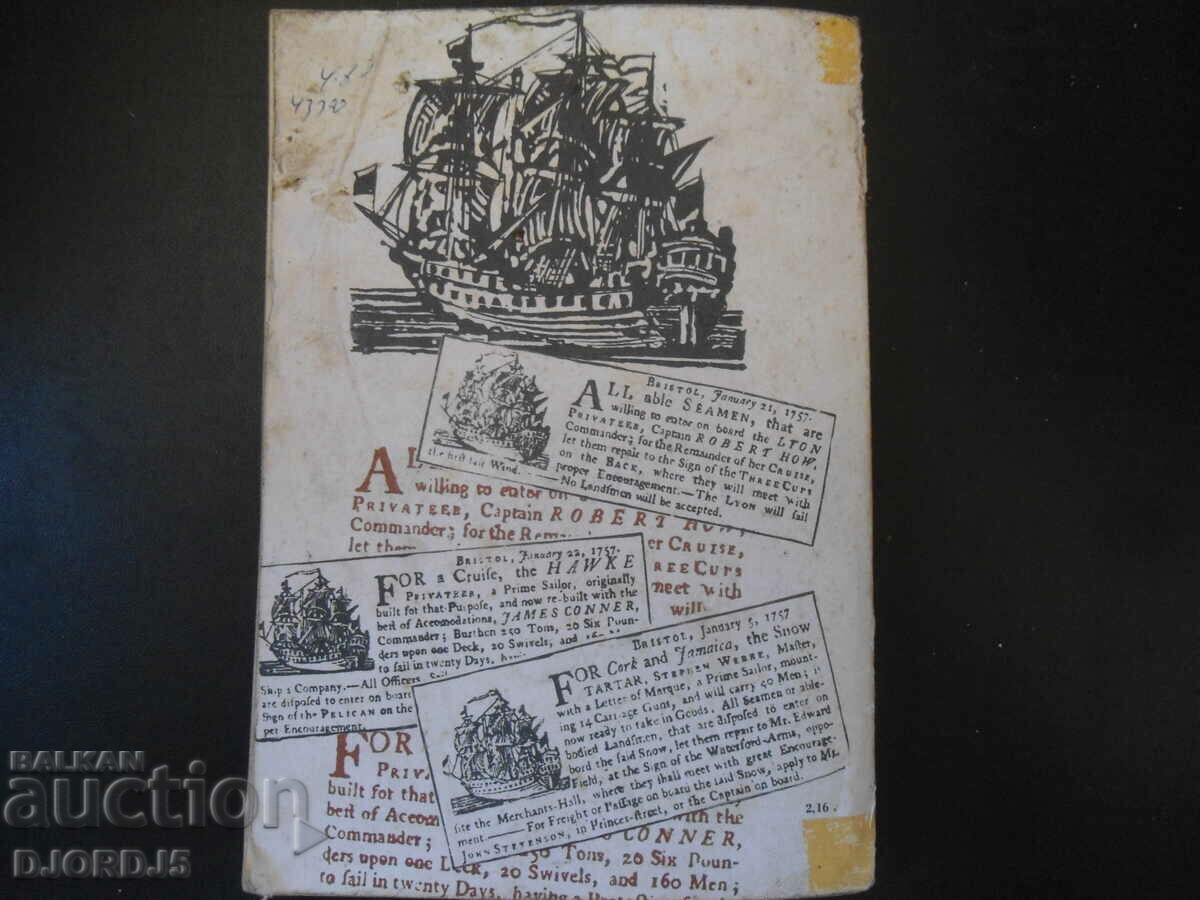 43790
BRISTOL, January 21, 1757.
ALL able SEAMEN, that are
willing to enter on board the LYON
PRIVATEER, Captain ROBERT HOW,
Commander; for the Remainder of her CRUISE,
let them repair to the Sign of the THREE CUPS
on the BACK, where they will meet with
proper Encouragement.—The LYON will sail
the first fair Wind.
No Landsmen will be accepted.
A
willing to enter on
PRIVATEER, Captain ROBERT HOW,
Commander; for the er CRUISE,
let them REE CUPS
meet with
will
BRISTOL, January 22, 1757.
FOR a Cruise, the HAWKE
PRIVATEER, a Prime Sailor, originally
built for that Purpose, and now re-built with the
best of Accomodations, JAMES CONNER,
Commander; Burthen 250 Tons, 20 Six Poun-
ders upon one Deck, 20 Swivels, and 160
to sail in twenty Days,
Ship's Company.—All Officers
are disposed to enter on board
Sign of the PELICAN on the
per Encouragement.
BRISTOL, January 5, 1757
FOR Cork and Jamaica, the Snow
TARTAR, STEPHEN WEBBE, Master,
with a Letter of Marque, a Prime Sailor, mount-
ing 14 Carriage Guns, and will carry 50 Men; is
now ready to take in Goods. All Seamen or able-
bodied Landsmen, that are disposed to enter on
bord the said Snow, let them repair to Mr. Edward
Field, at the Sign of the Waterford-Arms, oppo-
site the Merchants-Hall, where they shall meet with great Encourage-
ment.—For Freight or Passage on board the said Snow, apply to Mr.
JOHN STEVENSON, in Princes-street, or the Captain on board.
FOR
PRIV
built for that
best of Accom with the
Commander; CONNER,
ders upon one Deck, 250 Tons, 20 Six Poun-
20 Swivels, and 160 Men;
to sail in twenty Days, having a
2,16.
BALKAN
auction
DJORD_J5